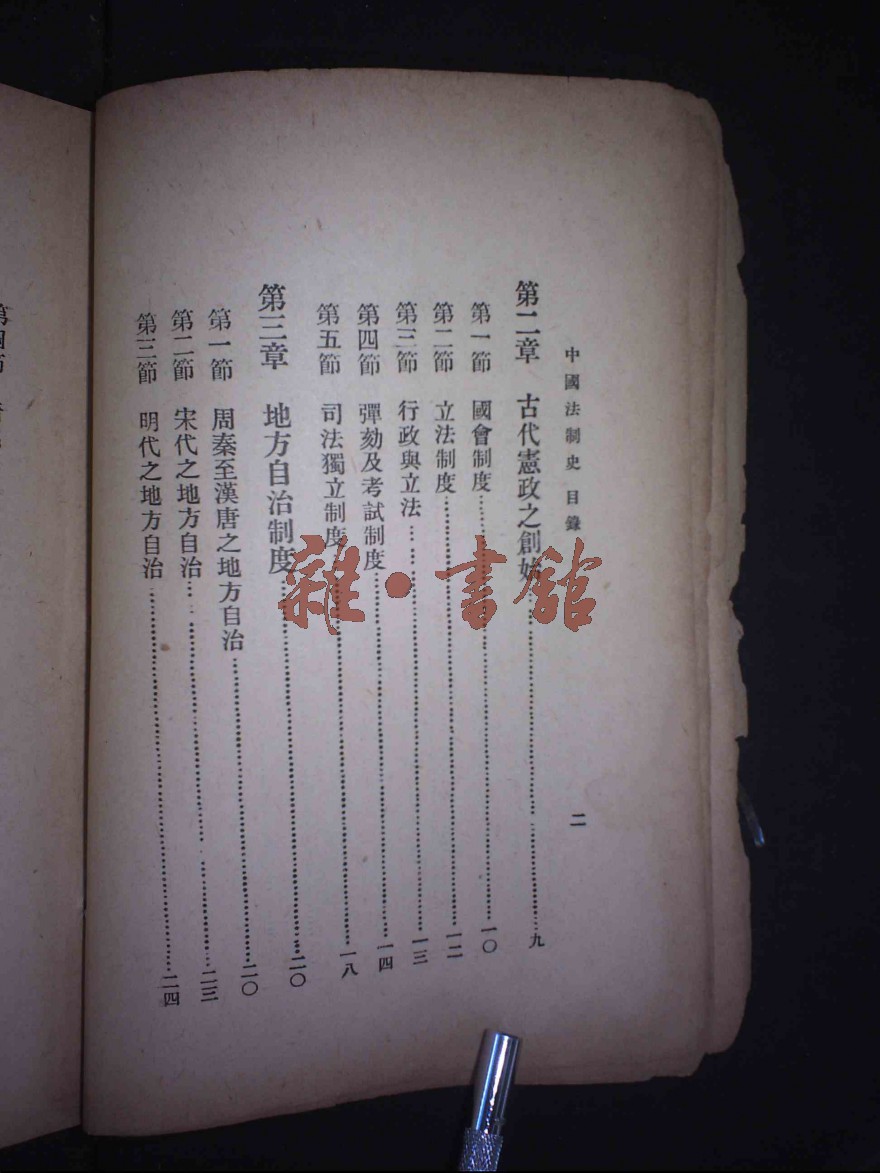 中國法制史 目錄 二
第二章 古代憲政之創始……九
第一節 國會制度……一〇
第二節 立法制度……一二
第三節 行政與立法……一三
第四節 彈劾及考試制度……一四
第五節 司法獨立制度……一八
第三章 地方自治制度……二〇
第一節 周秦至漢唐之地方自治……二〇
第二節 宋代之地方自治……二三
第三節 明代之地方自治……二四
第四節
雜·書館